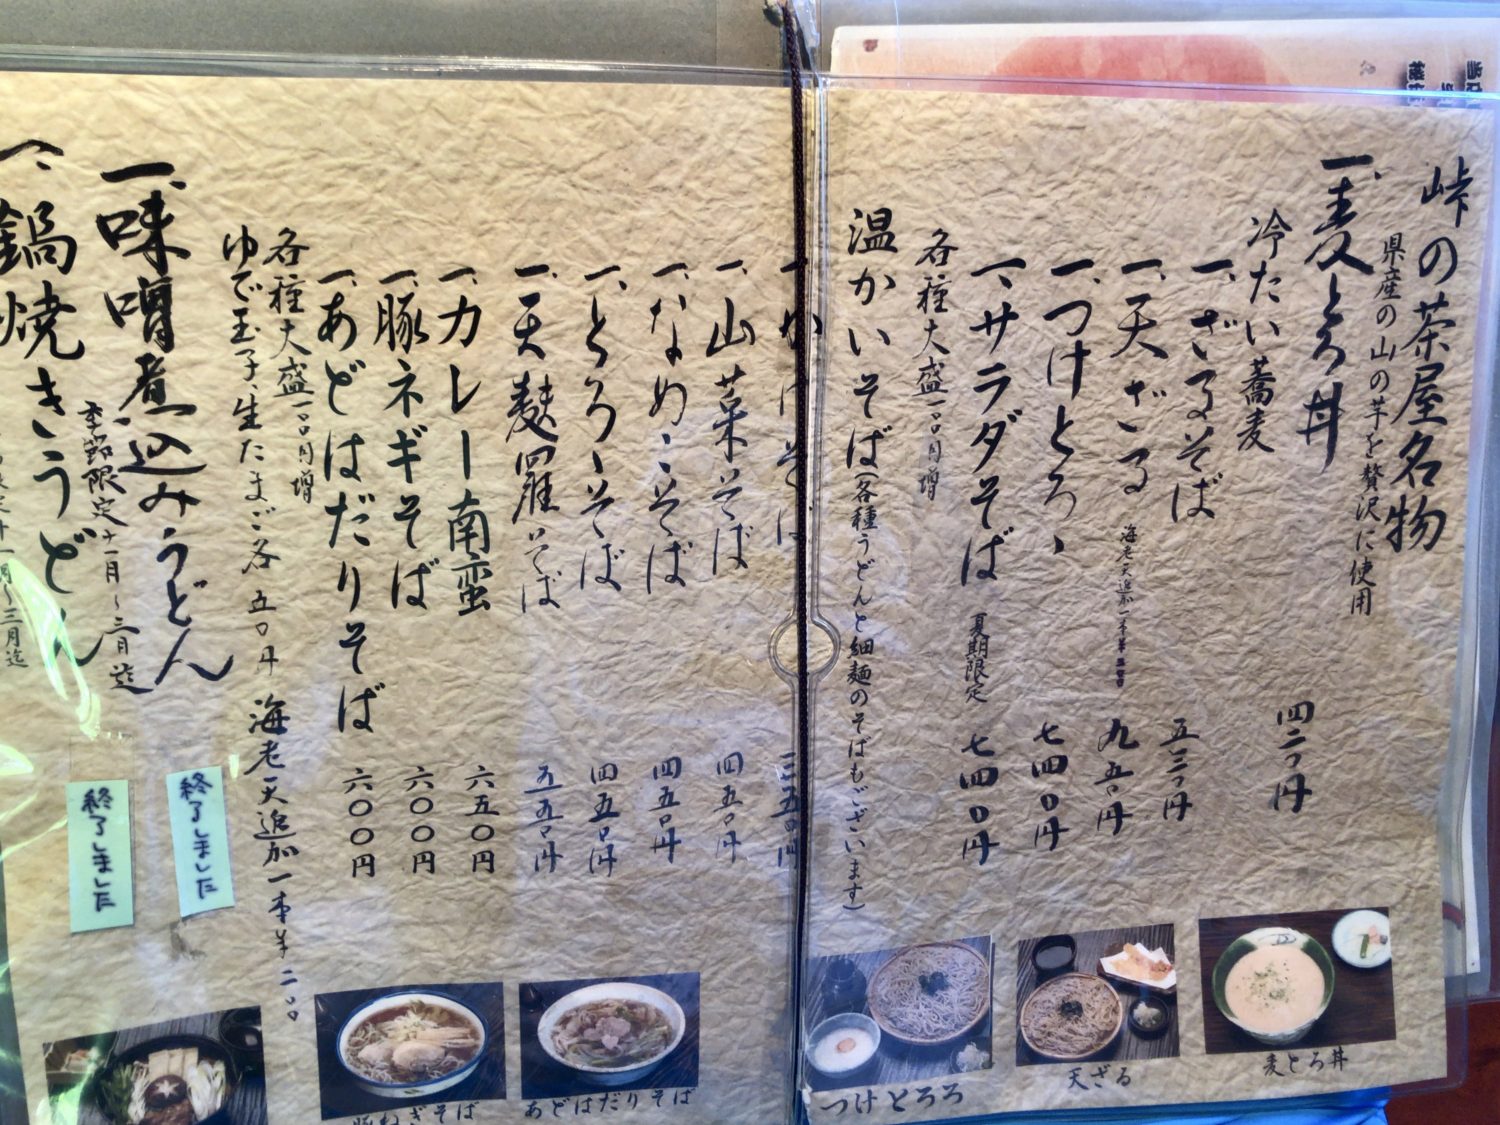 峠の茶屋名物
県産の山の芋を贅沢に使用
一、麦とろ丼 四二〇円
冷たい蕎麦
一、ざるそば 五三〇円
一、天ざる 九五〇円
海老天追加一本
一、つけとろゝ 七四〇円
一、サラダそば 夏期限定 七四〇円
各種大盛一〇〇円増
温かいそば(各種うどんと細麺のそばもございます)
一、かけそば 三五〇円
一、山菜そば 四五〇円
一、なめこそば 四五〇円
一、とろろそば 四五〇円
一、天麩羅そば 五五〇円
一、カレー南蛮 六五〇円
一、豚ネギそば 六〇〇円
一、あどはだりそば 六〇〇円
各種大盛一〇〇円増
ゆで玉子、生たまご各五〇円 海老天追加一本
一、味噌煮込みうどん
季節限定十一月〜三月迄
終了しました
一、鍋焼きうどん
十一月〜三月迄
終了しました
麦とろ丼
天ざる
つけとろろ
あどはだりそば
豚ねぎそば